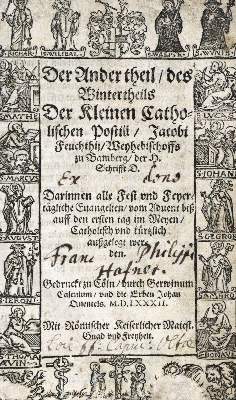 S. RICHAR.
S. WILIBAT.
S. WALPVR.
S. WVNIB.
Der Ander theil / des
Wintertheils
Der Kleinen Catho-
lischen Postill / Jacobi
Feuchtii / Weyhebischoffs
zu Bamberg / der H.
Schrifft D.
Ex dono
Darinnen alle Fest und Feyer-
tägliche Euangelien / vom Aduent biß
auff den ersten tag im Meyen /
Catholisch vnd kürtzlich
außgelegt wer-
den.
Franc Philippi
Hafner.
Gedruckt zu Cöln / durch Gerwinum
Calenium / vnd die Erben Johan
Quentels. M.D.LXXXII.
Mit Römischer Keiserlicher Maiest.
Gnad vnd Freyheit.
S. MATHE
S. MARCVS
S. LVCAS
S. IOHAN
S. AVGVST
S. GREGO
S. IERONI